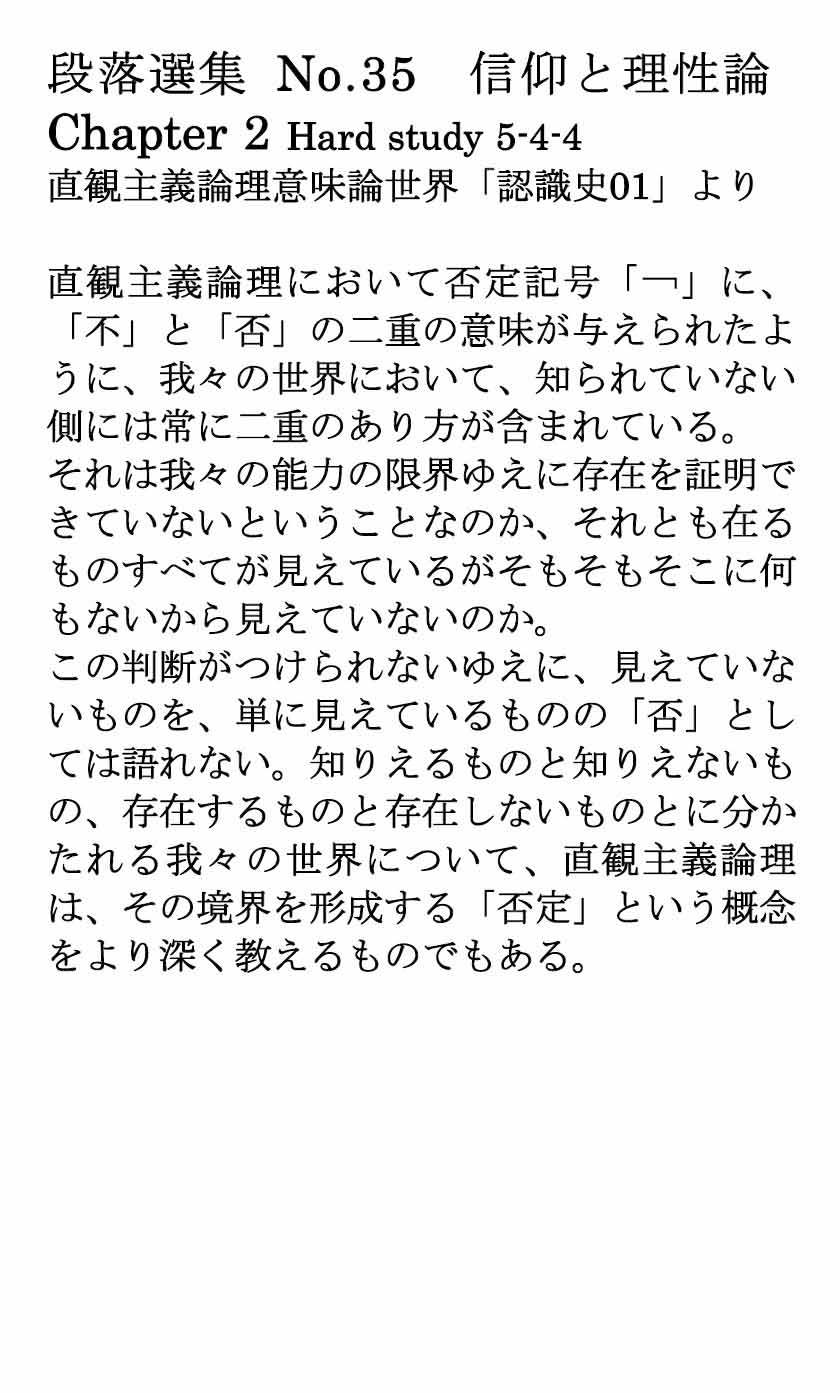 段落選集 No.35　信仰と理性論
Chapter 2 Hard study 5-4-4
直観主義論理意味論世界「認識史01」より
直観主義論理において否定記号「￢」に、
「不」と「否」の二重の意味が与えられたよ
うに、我々の世界において、知られていない
側には常に二重のあり方が含まれている。
それは我々の能力の限界ゆえに存在を証明で
きていないということなのか、それとも在る
ものすべてが見えているがそもそもそこに何
もないから見えていないのか。
この判断がつけられないゆえに、見えていな
いものを、単に見えているものの「否」とし
ては語れない。知りえるものと知りえないも
の、存在するものと存在しないものとに分か
たれる我々の世界について、直観主義論理
は、その境界を形成する「否定」という概念
をより深く教えるものでもある。